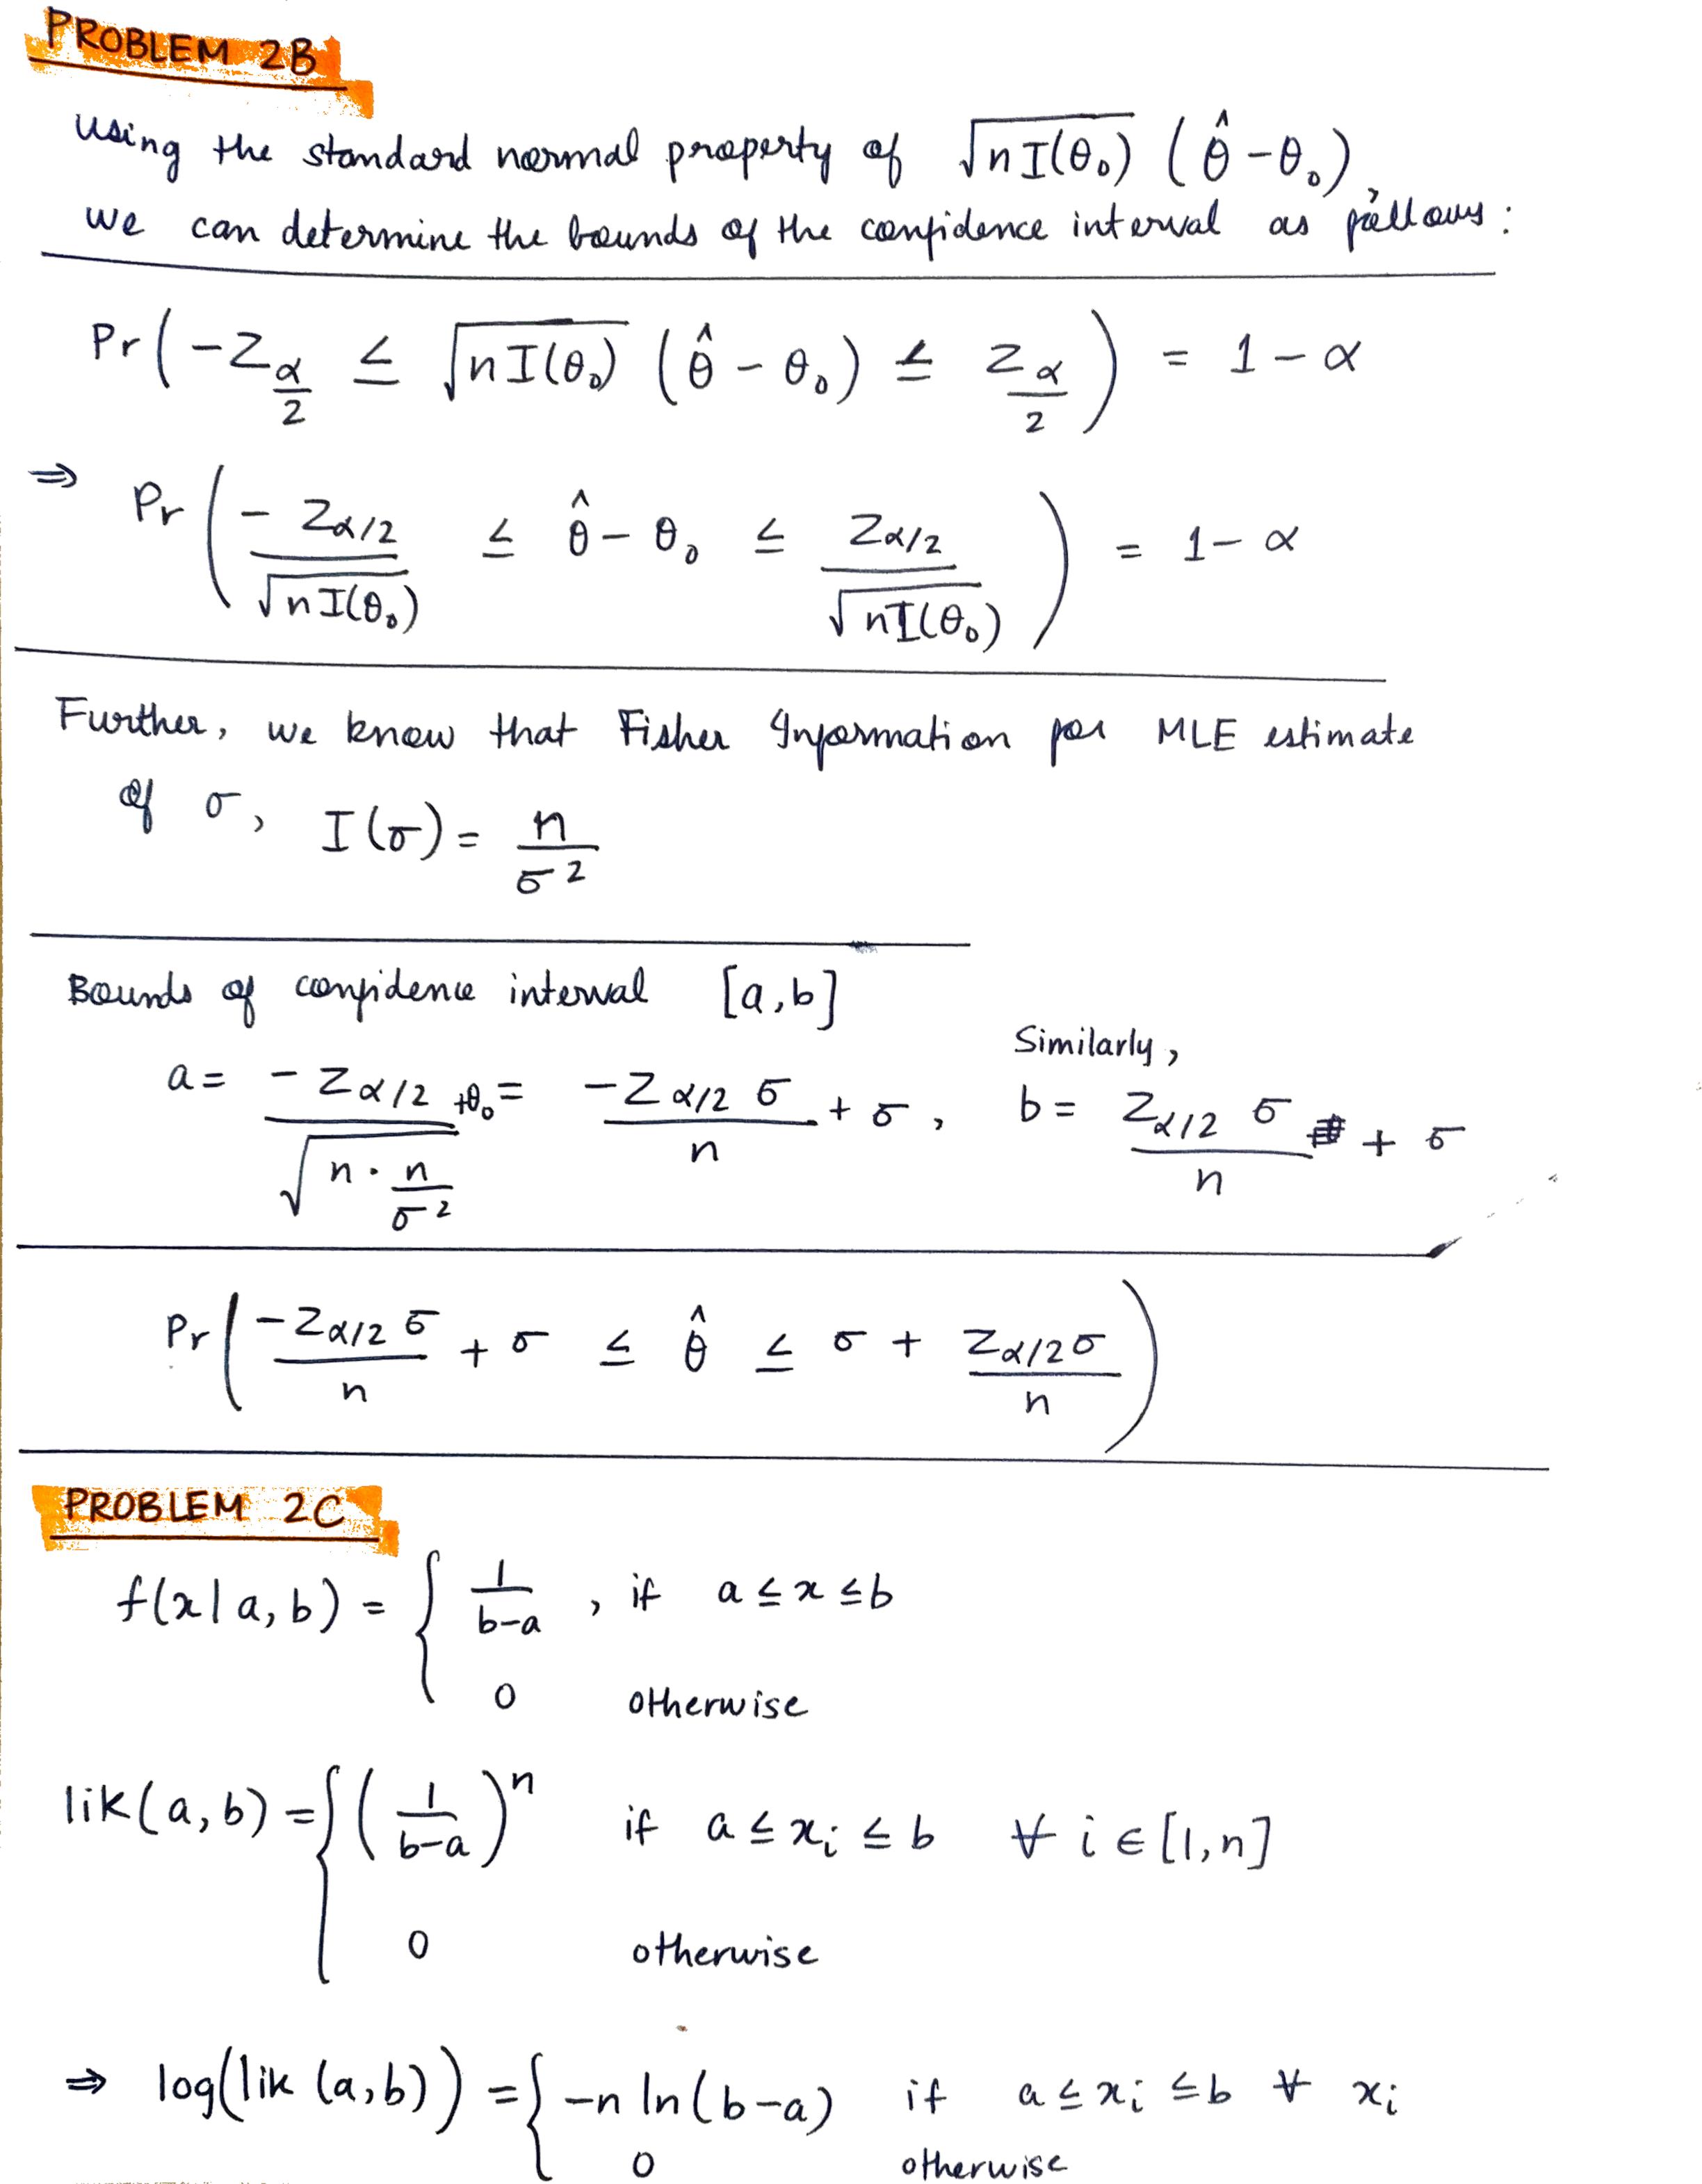 PROBLEM 2B
using the standard normal property of √nI(θ₀) (θ̂ - θ₀),
we can determine the bounds of the confidence interval as follows:
Pr(-Z_{α/2} ≤ √nI(θ₀) (θ̂ - θ₀) ≤ Z_{α/2}) = 1 - α
⇒ Pr(-Z_{α/2}/√nI(θ₀) ≤ θ̂ - θ₀ ≤ Z_{α/2}/√nI(θ₀)) = 1 - α
Further, we know that Fisher Information for MLE estimate
of σ, I(σ) = n/σ²
Bounds of confidence interval [a,b]
Similarly,
a = -Z_{α/2}/√(n · n/σ²) + θ₀ = -Z_{α/2} σ/n + σ, b = Z_{α/2} σ/n + σ
Pr(-Z_{α/2} σ/n + σ ≤ θ̂ ≤ σ + Z_{α/2} σ/n)
PROBLEM 2C
f(x|a,b) = { 1/(b-a) , if a ≤ x ≤ b
0 otherwise
lik(a,b) = { (1/(b-a))ⁿ if a ≤ xᵢ ≤ b ∀ i ∈ [1,n]
0 otherwise
⇒ log(lik(a,b)) = { -n ln(b-a) if a ≤ xᵢ ≤ b ∀ xᵢ
0 otherwise